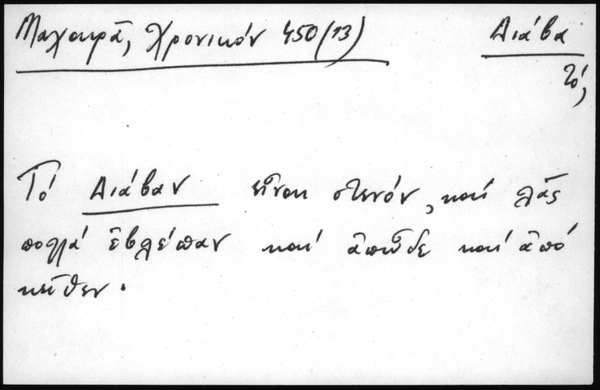 Μαχαιρᾶ, Χρονικόν 450 (13) Διάβα
τό,
Τό Διάβαν εἶναι στενόν, καί λᾶς
πολλά ἐβλέπαν καί ἀποῦδε καί ἀπό
κεῖθεν.